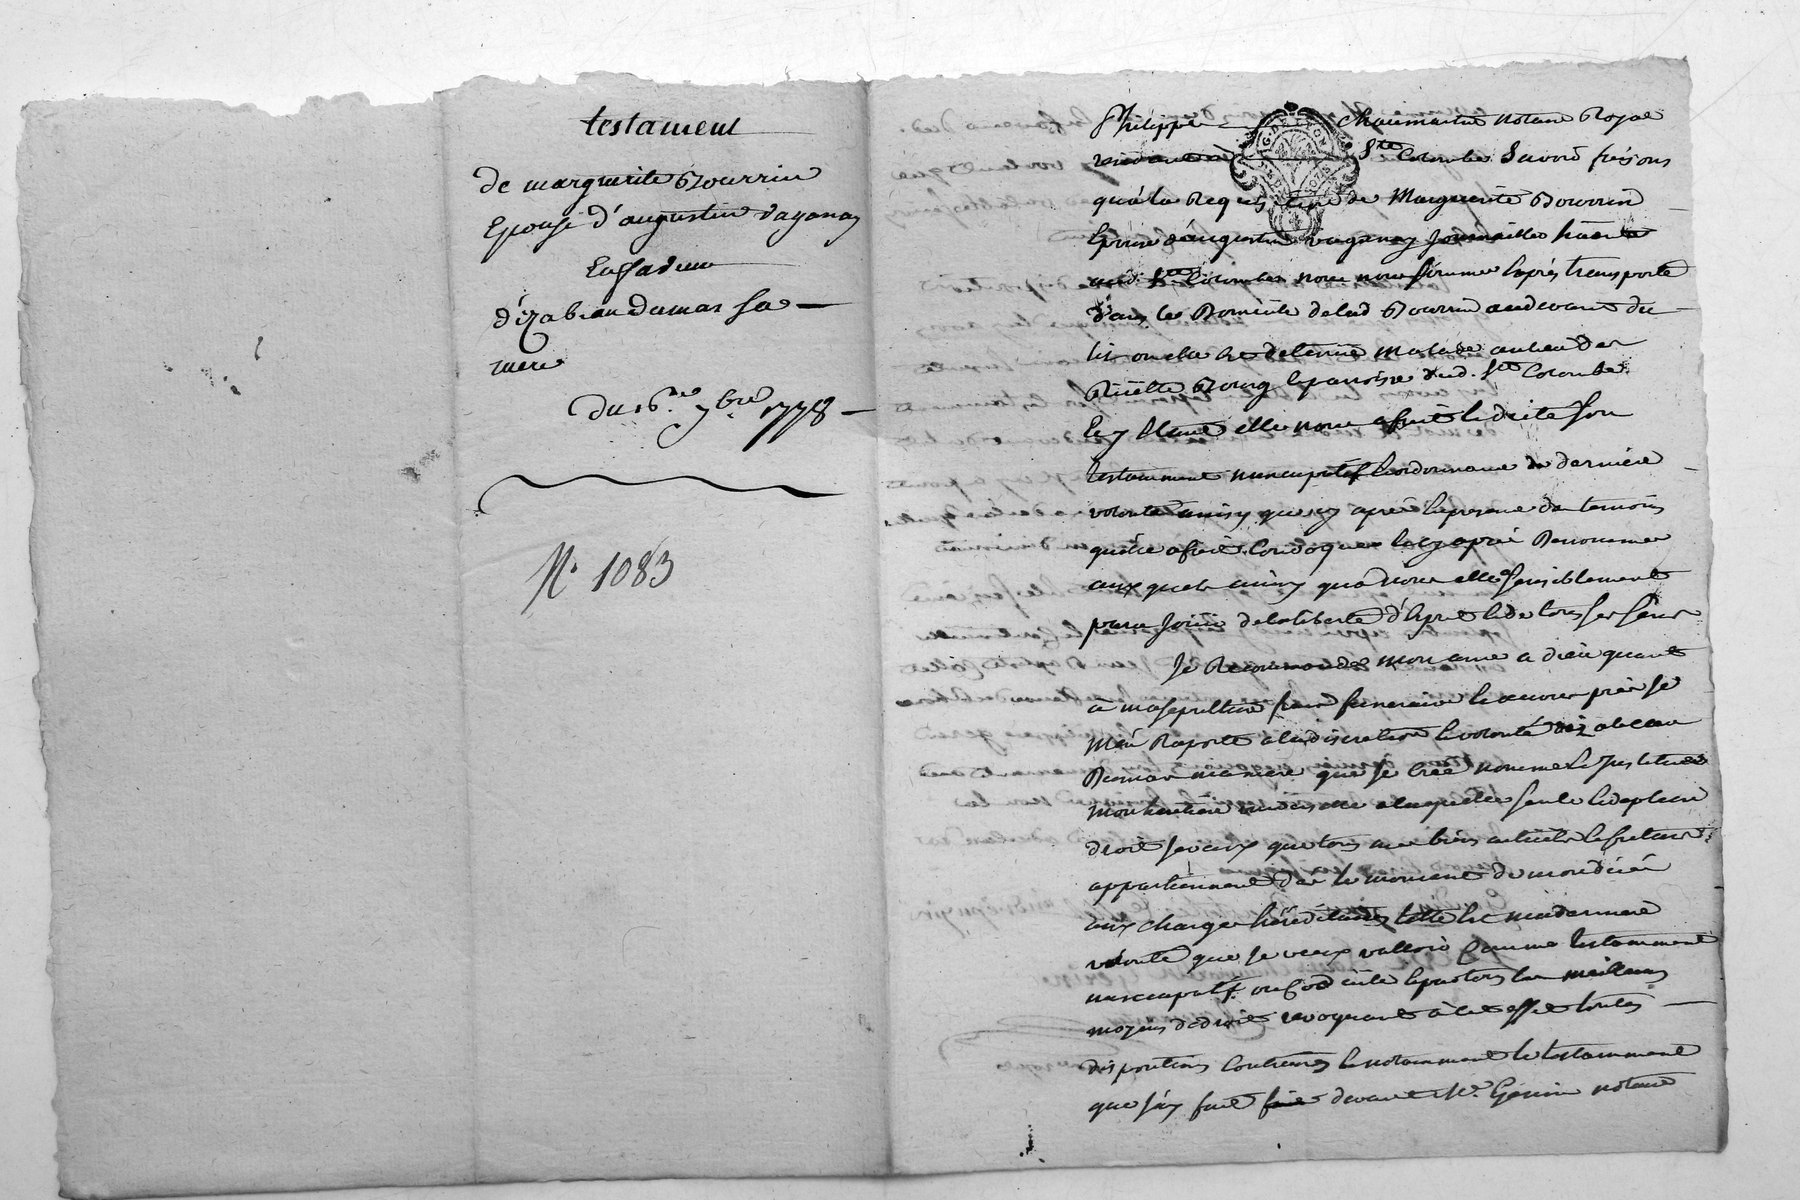 testament
de marguerite Bourrin
Epouse d'augustin vaganay
En faveur
d'izabeau dumas sa
mere
du 16.me 7bre 1778
N. 1083
Philippe chaumartin notaire Royal
residant à Ste Colombe Savoir faisons
qu'a la Requisition de Marguerite Bourrin
Epouse d'augustin vaganay journaillier
aud. Ste Colombe nous nous sommes exprès transporté
dans le Domicile de lad Bourrin audevant du
lit ou elle est detenue malade au lieu des
Bourg & paroisse dud. Ste Colombe.
Ey Etant elle nous a fait & dicté son
testamment nuncupatif & ordonnance de derniere
volonté ainsy que cy après En presence des temoins
qu'elle a fait Convoquer & cy après Denommes
aux quels ainsy qu'a nous elle a sensiblement
paru jouir de la liberté d'Esprit & de tous ses sens
Je Recommande mon ame a dieu quant
à ma sepulture frais funeraire & oeuvres pies je
m'en Raporte a la discretion & volonté d'izabeau
Dumas ma mere que je cree nomme & Institue
mon heritiere universelle a laquelle seule & de plein
droit je veux que tous mes biens actuels & futurs
appartiennent des le moment de mon décés
aux charges héréditaires telle est ma derniere
volonté que je veux valloir Comme testamment
nuncupatif ou Codicile & par tous les meilleurs
moyens de droit revoquant à cet effet toutes
dispositions Contraires & notamment le testamment
que j'ay fait devant Me. notaire